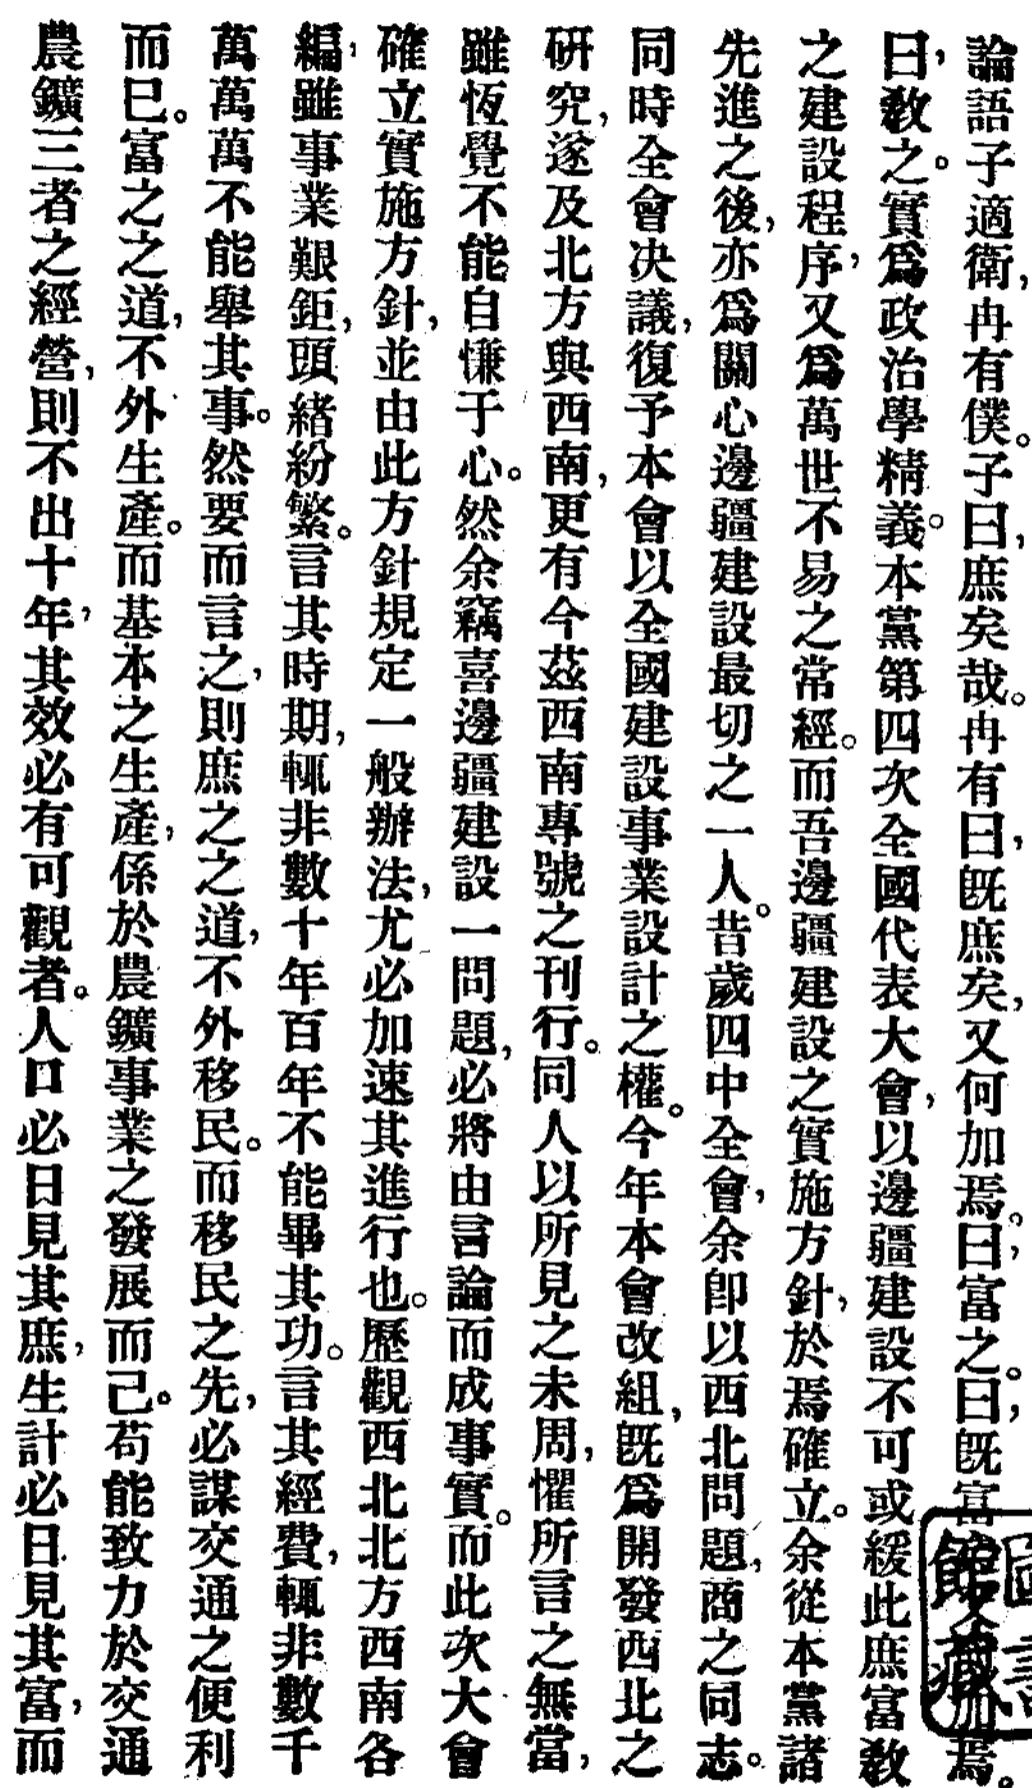 論語子適衛，冉有僕。子曰，庶矣哉。冉有曰，既庶矣，又何加焉。曰，富之。曰，既富矣，又何加焉。
曰，敎之。實爲政治學精義。本黨第四次全國代表大會，以邊疆建設不可或緩此庶富敎
之建設程序，又爲萬世不易之常經。而吾邊疆建設之實施方針，於焉確立。余從本黨諸
先進之後，亦爲關心邊疆建設最切之一人。昔歲四中全會，余卽以西北問題，商之同志。
同時全會决議，復予本會以全國建設事業設計之權。今年本會改組，旣爲開發西北之
硏究，遂及北方與西南，更有今茲西南專號之刊行。同人以所見之未周，懼所言之無當，
雖恆覺不能自慊于心。然余竊喜邊疆建設一問題，必將由言論而成事實。而此次大會
確立實施方針，並由此方針規定一般辦法，尤必加速其進行也。歷觀西北北方西南各
編，雖事業艱鉅，頭緒紛繁。言其時期，輒非數十年百年不能畢其功。言其經費，輒非數千
萬萬萬不能舉其事。然要而言之，則庶之之道，不外移民。而移民之先，必謀交通之便利
而已。富之之道，不外生產。而基本之生產，係於農鑛事業之發展而己。苟能致力於交通
農鑛三者之經營，則不出十年，其效必有可觀者。人口必日見其庶，生計必日見其富，而
圖書
館藏